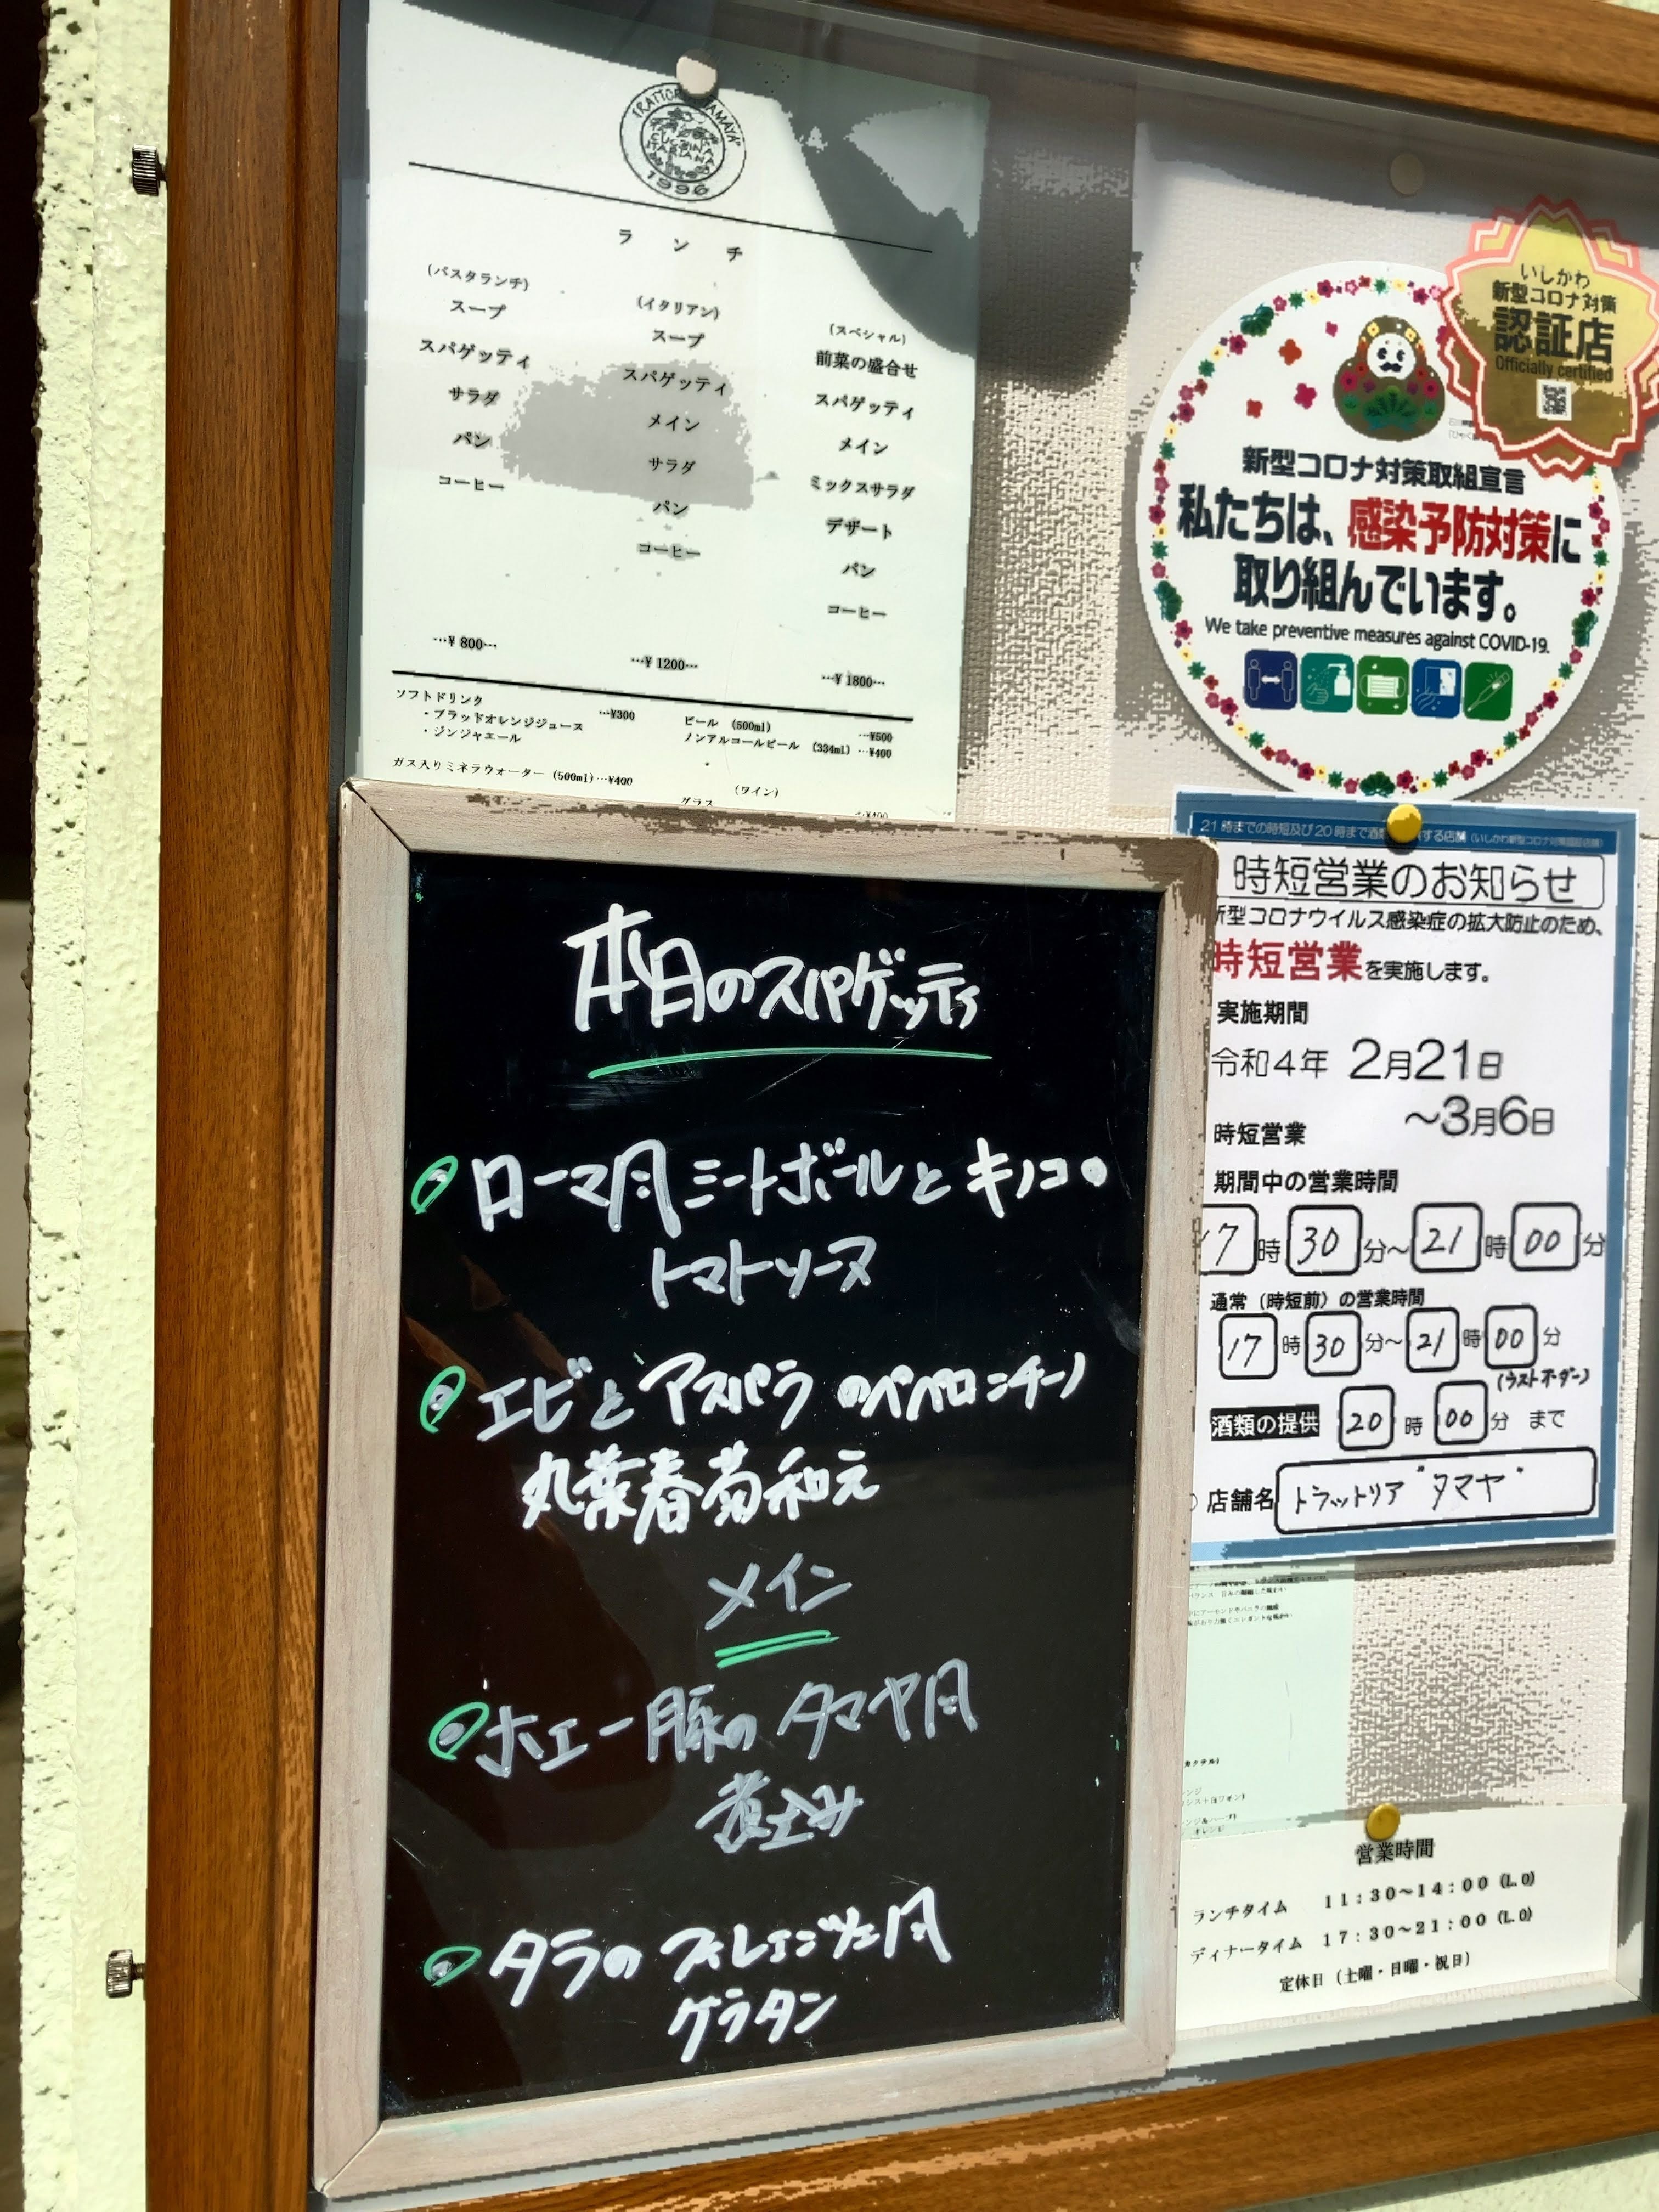 TRATTORIA "TAMAYA"
CUCINA
ITALIANA
1996
ランチ
(パスタランチ)
スープ
スパゲッティ
サラダ
パン
コーヒー
…¥800…
(イタリアン)
スープ
スパゲッティ
メイン
サラダ
パン
コーヒー
…¥1200…
(スペシャル)
前菜の盛合せ
スパゲッティ
メイン
ミックスサラダ
デザート
パン
コーヒー
…¥1800…
ソフトドリンク …¥300
・ブラッドオレンジジュース
・ジンジャエール
ガス入りミネラウォーター (500ml)…¥400
ビール (500ml) …¥500
ノンアルコールビール (334ml) …¥400
(ワイン)
グラス …¥400
本日のスパゲッティ
ローマ風ミートボールとキノコの
トマトソース
エビとアスパラのペペロンチーノ
丸葉春菊和え
メイン
ホエー豚のタマヤ風
煮込み
タラのフィレンツェ風
グラタン
いしかわ
新型コロナ対策
認証店
Officially certified
新型コロナ対策取組宣言
私たちは、感染予防対策に
取り組んでいます。
We take preventive measures against COVID-19.
21時までの時短及び20時まで酒類 する店舗(いしかわ新型コロナ対策認証店舗)
時短営業のお知らせ
新型コロナウイルス感染症の拡大防止のため、
時短営業を実施します。
実施期間
令和4年 2月21日
～3月6日
時短営業
期間中の営業時間
17時30分～21時00分
通常(時短前)の営業時間
17時30分～21時00分
(ラストオーダー)
酒類の提供 20時00分 まで
店舗名 トラットリア"タマヤ"
営業時間
ランチタイム 11:30～14:00 (L.O)
ディナータイム 17:30～21:00 (L.O)
定休日(土曜・日曜・祝日)